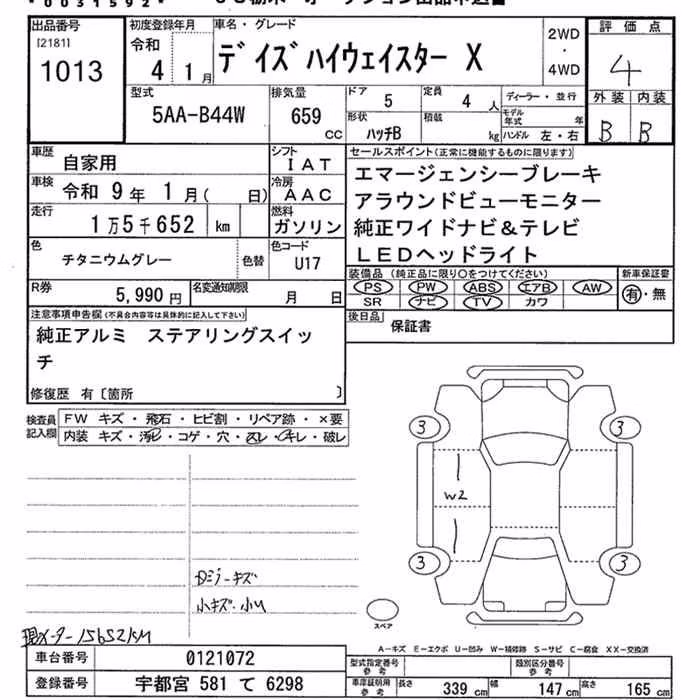 *0031592*
出品番号
[2181]
1013
初度登録年月
令和
4 1月
車名・グレード
デイズハイウェイスター X
2WD
・
4WD
評価点
4
型式
5AA-B44W
排気量
659
cc
ドア
5
定員
4 人
形状
ハッチB
積載
kg
ディーラー・並行
モデル年式 年
ハンドル 左・右
外装 内装
B B
車歴
自家用
シフト
IAT
車検
令和 9年 1月( 日)
冷房
AAC
走行
1万5千652 km
燃料
ガソリン
色
チタニウムグレー
色替
色コード
U17
R券
5,990 円
名変通知期限
月 日
セールスポイント(正常に機能するものに限ります)
エマージェンシーブレーキ
アラウンドビューモニター
純正ワイドナビ&テレビ
LEDヘッドライト
装備品 (純正品に限り○をつけてください)
PS PW ABS エアB AW
SR ナビ TV カワ
新車保証書
有・無
後日品
保証書
注意事項申告欄(不具合内容等は具体的に記入して下さい)
純正アルミ ステアリングスイッ
チ
修復歴 有〔箇所 〕
検査員
記入欄
FW キズ・飛石・ヒビ割・リペア跡・×要
内装 キズ・汚レ・コゲ・穴・スレ・キレ・破レ
3 3
W2
3 3
キズ
小キズ・小U
現メーター15652KM
スペア
A-キズ E-エクボ U-凹み W-補修跡 S-サビ C-腐食 XX-交換済
車台番号
0121072
登録番号
宇都宮 581 て 6298
型式指定番号
参考
類別区分番号
参考
車庫証明用
参考
長さ
339 cm
幅
147 cm
高さ
165 cm